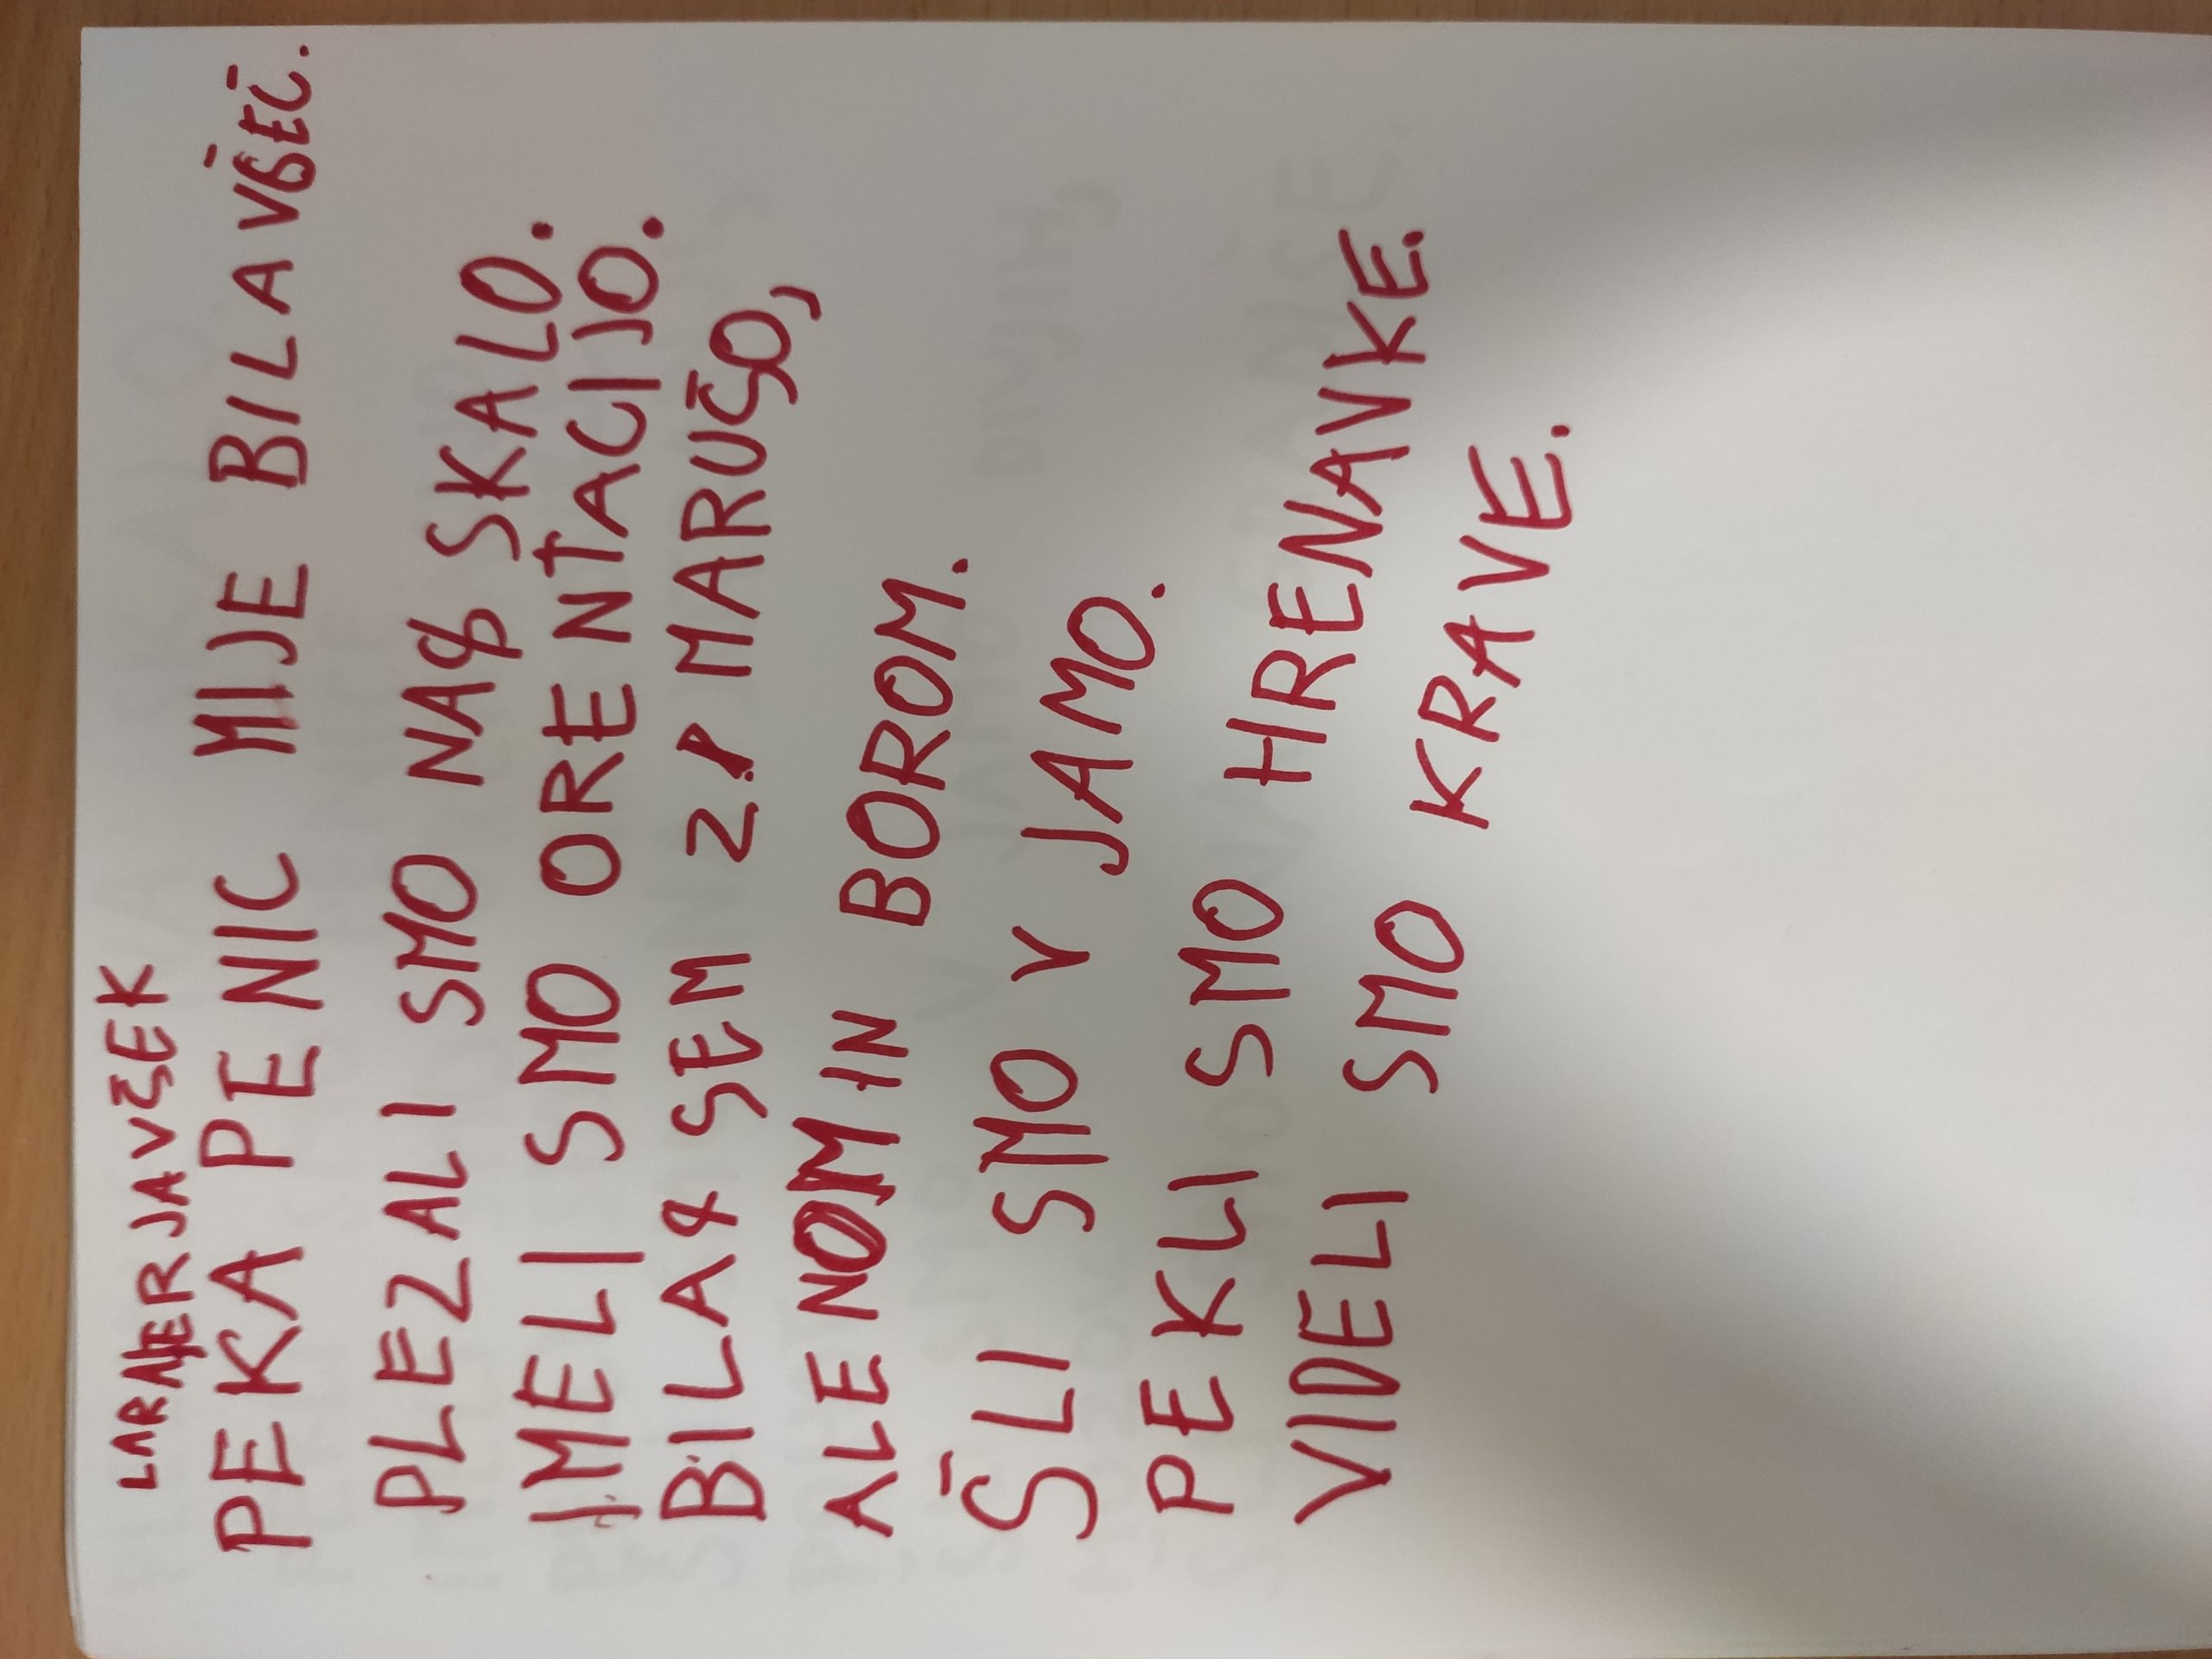 LARA JERJAVŠEK
PEKA PENIC MIJE BILA VŠEČ.
PLEZALI SMO NA SKALO.
IMELI SMO ORENTACIJO.
BILA SEM Z MARUŠO,
ALENOM IN BOROM.
ŠLI SMO V JAMO.
PEKLI SMO HRENAVKE.
VIDELI SMO KRAVE.